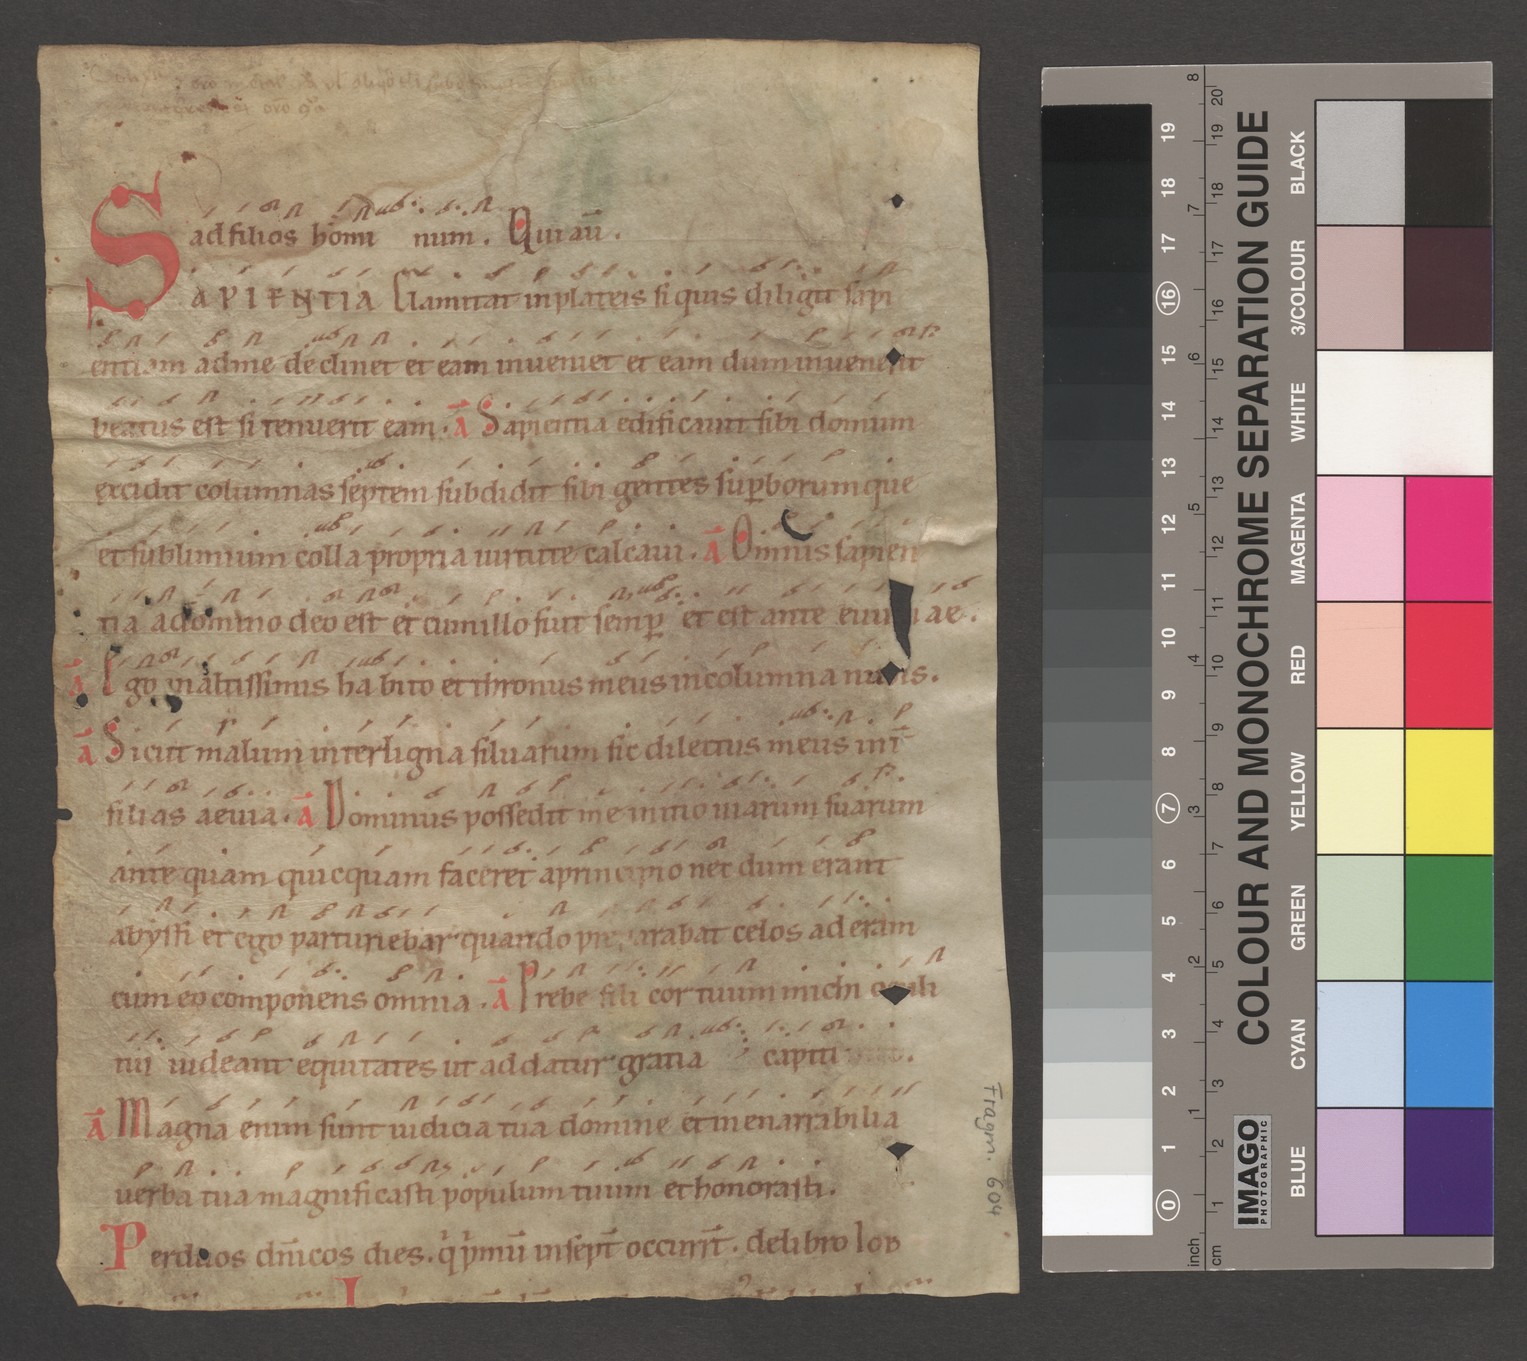 ad filios homi num. Quia ū.
SAPIENTIA Clamitat in plateis si quis diligit sapi
entiam ad me declinet et eam inveniet et eam dum invenerit
beatus est si tenuerit eam. A Sapientia edificavit sibi domum
excidit columnas septem subdidit sibi gentes sup̄borum que
et sublimium colla propria virtute calcavit. A Omnis sapien
tia a domino deo est et cum illo fuit semp̄ et est ante evum ae.
A Ego in altissimis habito et thronus meus in columna nubis.
A Sicut malum inter ligna silvarum sic dilectus meus int̄
filias aevia. A Dominus possedit me initio viarum suarum
ante quam quicquam faceret a principio nec dum erant
abyssi et ego parturiebar quando preparabat celos aderam
cum eo componens omnia. A Prebe fili cor tuum michi oculi
tui videant equitates ut addatur gratia capiti
A Magna enim sunt iudicia tua domine et inenarrabilia
verba tua magnificasti populum tuum et honorasti.
Per duos dn̄icos dies. q̇ p̄mū in sept̄ occurrt̄. de libro Iob
Fragm. 604
COLOUR AND MONOCHROME SEPARATION GUIDE
BLACK
3/COLOUR
WHITE
MAGENTA
RED
YELLOW
GREEN
CYAN
BLUE
IMAGO
PHOTOGRAPHIC
19 18 17 16 15 14 13 12 11 10 9 8 7 6 5 4 3 2 1 0
8 7 6 5 4 3 2 1 inch
20 19 18 17 16 15 14 13 12 11 10 9 8 7 6 5 4 3 2 1 cm